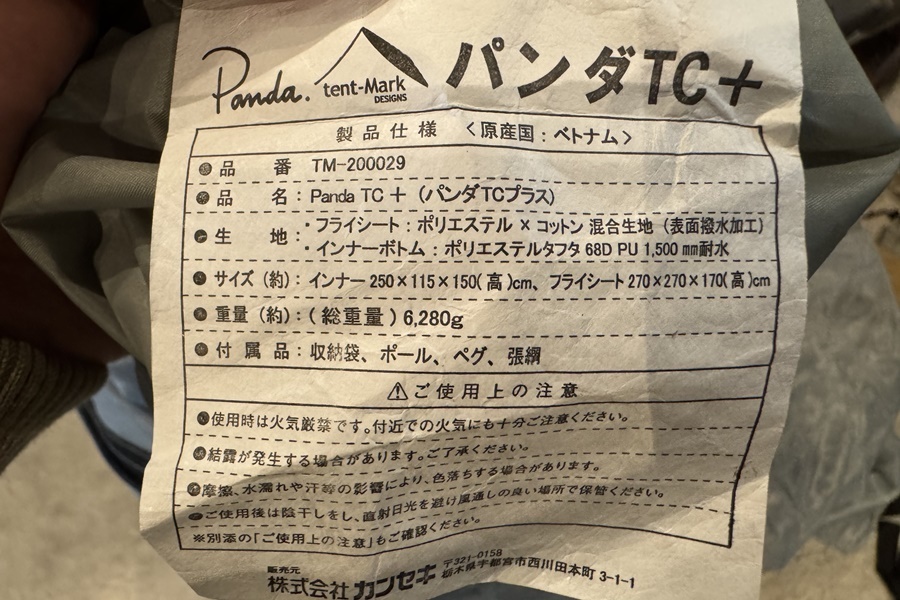 Panda. tent-Mark DESIGNS パンダTC+
製品仕様 〈原産国：ベトナム〉
●品　番 TM-200029
●品　名：Panda TC +（パンダTCプラス）
●生　地：・フライシート：ポリエステル × コットン 混合生地（表面撥水加工）
・インナーボトム：ポリエステルタフタ 68D PU 1,500 ㎜耐水
●サイズ（約）：インナー 250×115×150(高)cm、フライシート 270×270×170(高)cm
●重量（約）：(総重量) 6,280g
●付属品：収納袋、ポール、ペグ、張綱
⚠ご使用上の注意
●使用時は火気厳禁です。付近での火気にも十分ご注意ください。
●結露が発生する場合があります。ご了承ください。
●摩擦、水濡れや汗等の影響により、色落ちする場合があります。
●ご使用後は陰干しをし、直射日光を避け風通しの良い場所で保管ください。
※別添の「ご使用上の注意」もご確認ください。
販売元
株式会社カンセキ
〒321-0158
栃木県宇都宮市西川田本町 3-1-1